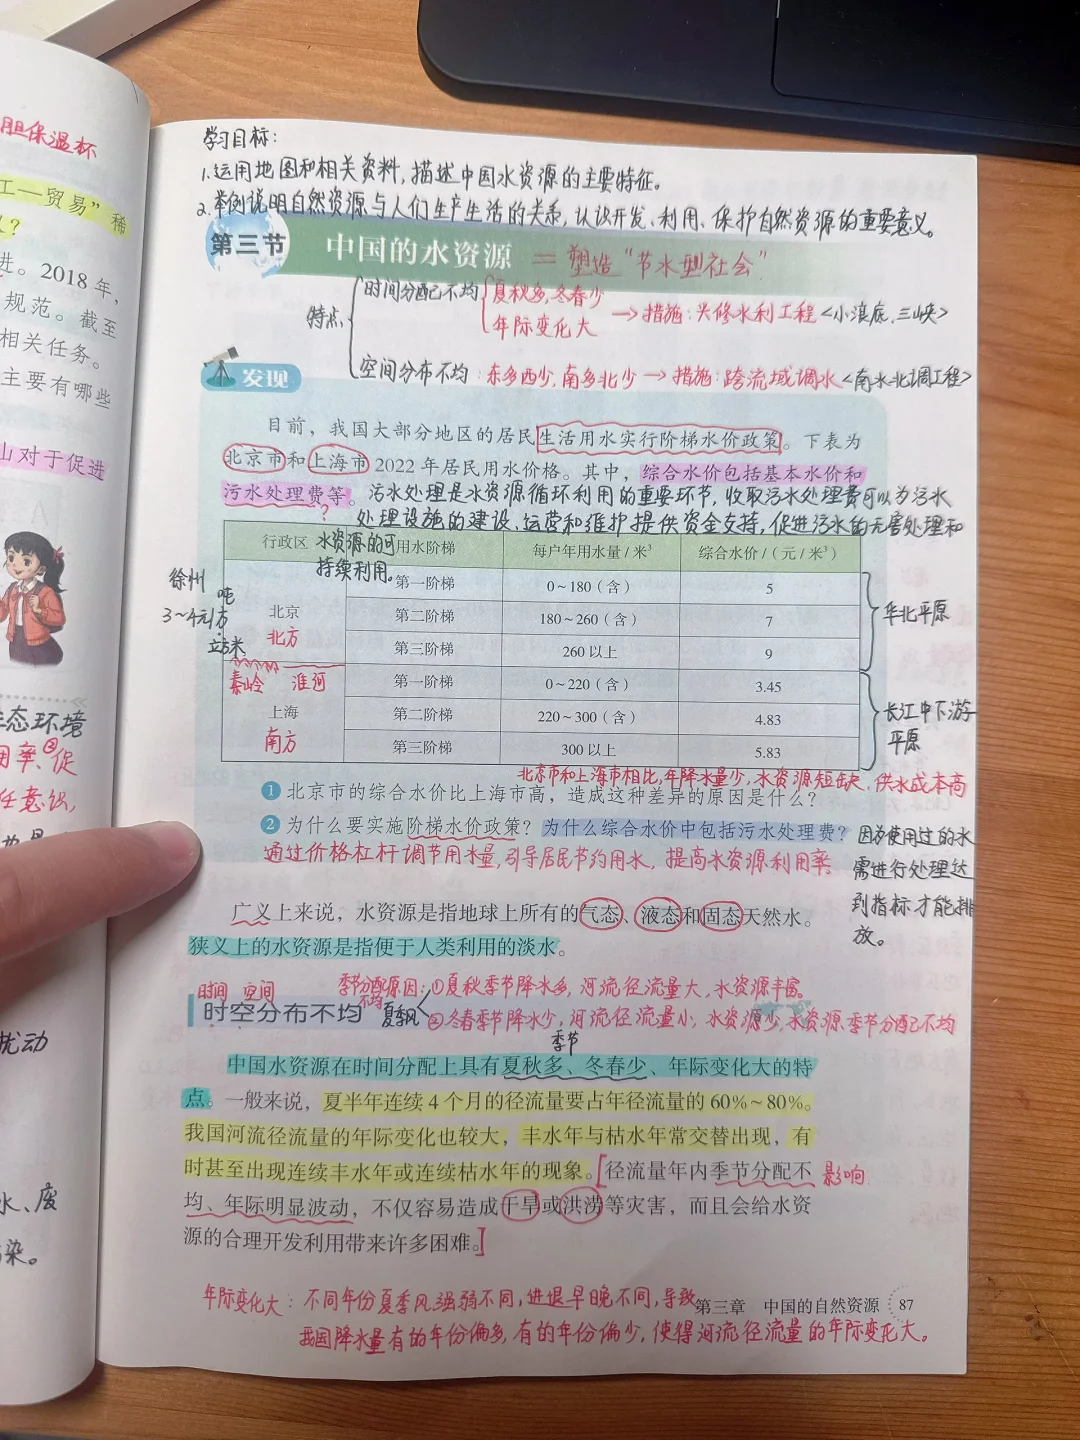 胆保温杯
工—贸易”稀
进。2018年,
规范。截至
相关任务。
主要有哪些
山对于促进
态环境
用率,促
任意识,
扰动
水、废
染。
学习目标:
1.运用地图和相关资料,描述中国水资源的主要特征。
2.举例说明自然资源与人们生产生活的关系,认识开发、利用、保护自然资源的重要意义。
第三节 中国的水资源 = 塑造“节水型社会”
特点
时间分配不均 夏秋多,冬春少
年际变化大 → 措施:兴修水利工程<小浪底、三峡>
空间分布不均:东多西少,南多北少 → 措施:跨流域调水<南水北调工程>
发现
目前,我国大部分地区的居民生活用水实行阶梯水价政策。下表为
北京市和上海市2022年居民用水价格。其中,综合水价包括基本水价和
污水处理费等。污水处理是水资源循环利用的重要环节,收取污水处理费可以为污水
?
处理设施的建设、运营和维护提供资金支持,促进污水的无害处理和
水资源的可
持续利用。
行政区 用水阶梯 每户年用水量/米³ 综合水价/(元/米³)
北京 第一阶梯 0~180(含) 5
第二阶梯 180~260(含) 7
第三阶梯 260以上 9
上海 第一阶梯 0~220(含) 3.45
第二阶梯 220~300(含) 4.83
第三阶梯 300以上 5.83
徐州 吨
3~4元/方
立方米
北方
秦岭 淮河
南方
华北平原
长江中下游
平原
北京市和上海市相比,年降水量少,水资源短缺,供水成本高
1 北京市的综合水价比上海市高,造成这种差异的原因是什么?
2 为什么要实施阶梯水价政策?为什么综合水价中包括污水处理费?
因为使用过的水
需进行处理达
到指标才能排
放。
通过价格杠杆调节用水量,引导居民节约用水,提高水资源利用率。
广义上来说,水资源是指地球上所有的气态、液态和固态天然水。
狭义上的水资源是指便于人类利用的淡水。
时间 空间
时空分布不均
季节分配不均原因:①夏秋季节降水多,河流径流量大,水资源丰富。
夏季风 ②冬春季节降水少,河流径流量小,水资源少,水资源季节分配不均
季节
中国水资源在时间分配上具有夏秋多、冬春少、年际变化大的特
点。一般来说,夏半年连续4个月的径流量要占年径流量的60%~80%。
我国河流径流量的年际变化也较大,丰水年与枯水年常交替出现,有
时甚至出现连续丰水年或连续枯水年的现象。[径流量年内季节分配不 影响
均、年际明显波动,不仅容易造成干旱或洪涝等灾害,而且会给水资
源的合理开发利用带来许多困难。]
年际变化大:不同年份夏季风强弱不同,进退早晚不同,导致
第三章 中国的自然资源 87
我国降水量有的年份偏多,有的年份偏少,使得河流径流量的年际变化大。